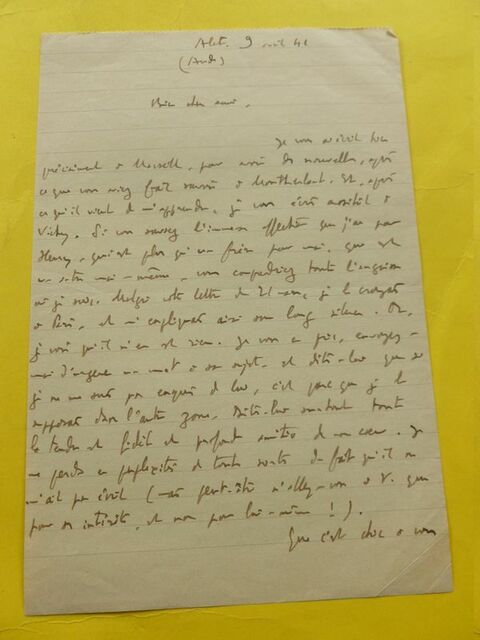 Alet. 9 avril 41
(Aude)
Bien cher ami,
Je vous ai écrit tout
précisément à Marseille, pour avoir des nouvelles, après
ce que vous aviez fait savoir à Montherlant. Et, après
ce qu'il vient de m'apprendre, je vous écris aussitôt à
Vichy. Si vous saviez l'immense affection que j'ai pour
Henry, qui est plus qu'un frère pour moi, qui est
un autre moi-même, vous comprendriez toute l'angoisse
où je suis. Malgré cette lettre du 21 mars, je le croyais
à Paris, et m'expliquais ainsi son long silence. Or,
je vois qu'il n'en est rien. Je vous en prie, envoyez-
moi d'urgence un mot à son sujet, et dites-lui que si
je ne me suis pas enquis de lui, c'est parce que je le
supposais dans l'autre zone. Dites-lui surtout toute
la tendre et fidèle et profonde amitié de mon cœur. Je
me perds en perplexités de toutes sortes du fait qu'il ne
m'ait pas écrit (mais peut-être n'allez-vous à V. que
pour ses intérêts, et non pour lui-même !).
Que c'est chic à vous